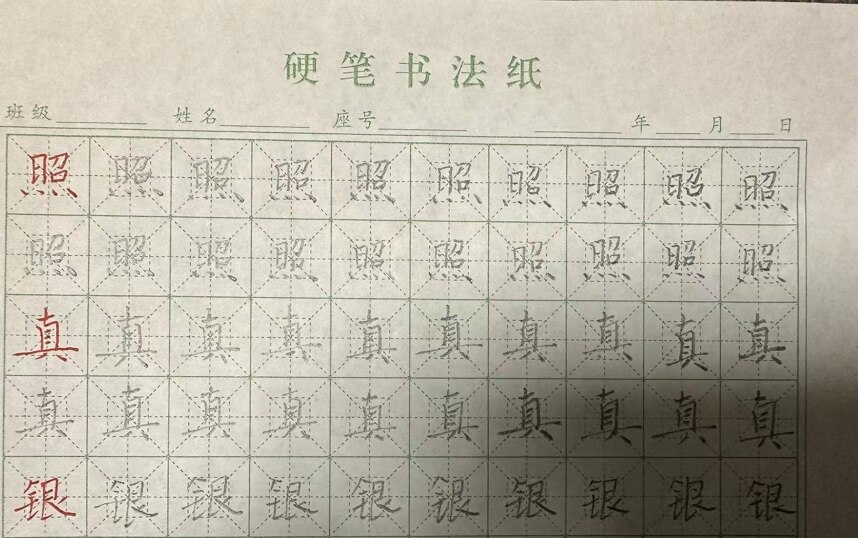 硬笔书法纸
班级 姓名 座号 年 月 日
照照照照照照照照照照
照照照照照照照照照照
真真真真真真真真真真
真真真真真真真真真真
银银银银银银银银银银